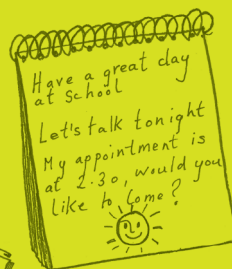 Have a great day
at School
Let's talk tonight
My appointment is
at 2.30, would you
like to come?